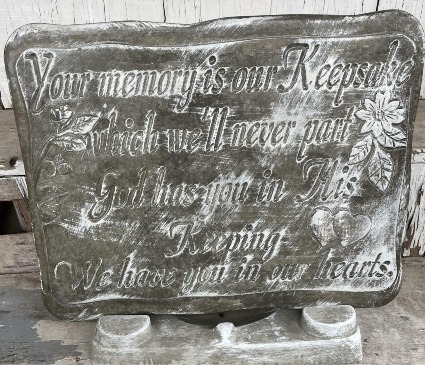 Your memory is our Keepsake
which we'll never part
God has you in His
Keeping
We have you in our hearts.